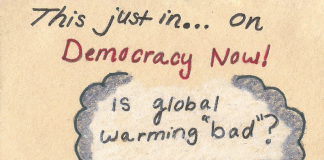 This just in... on
Democracy Now!
Is global
warming "bad"?